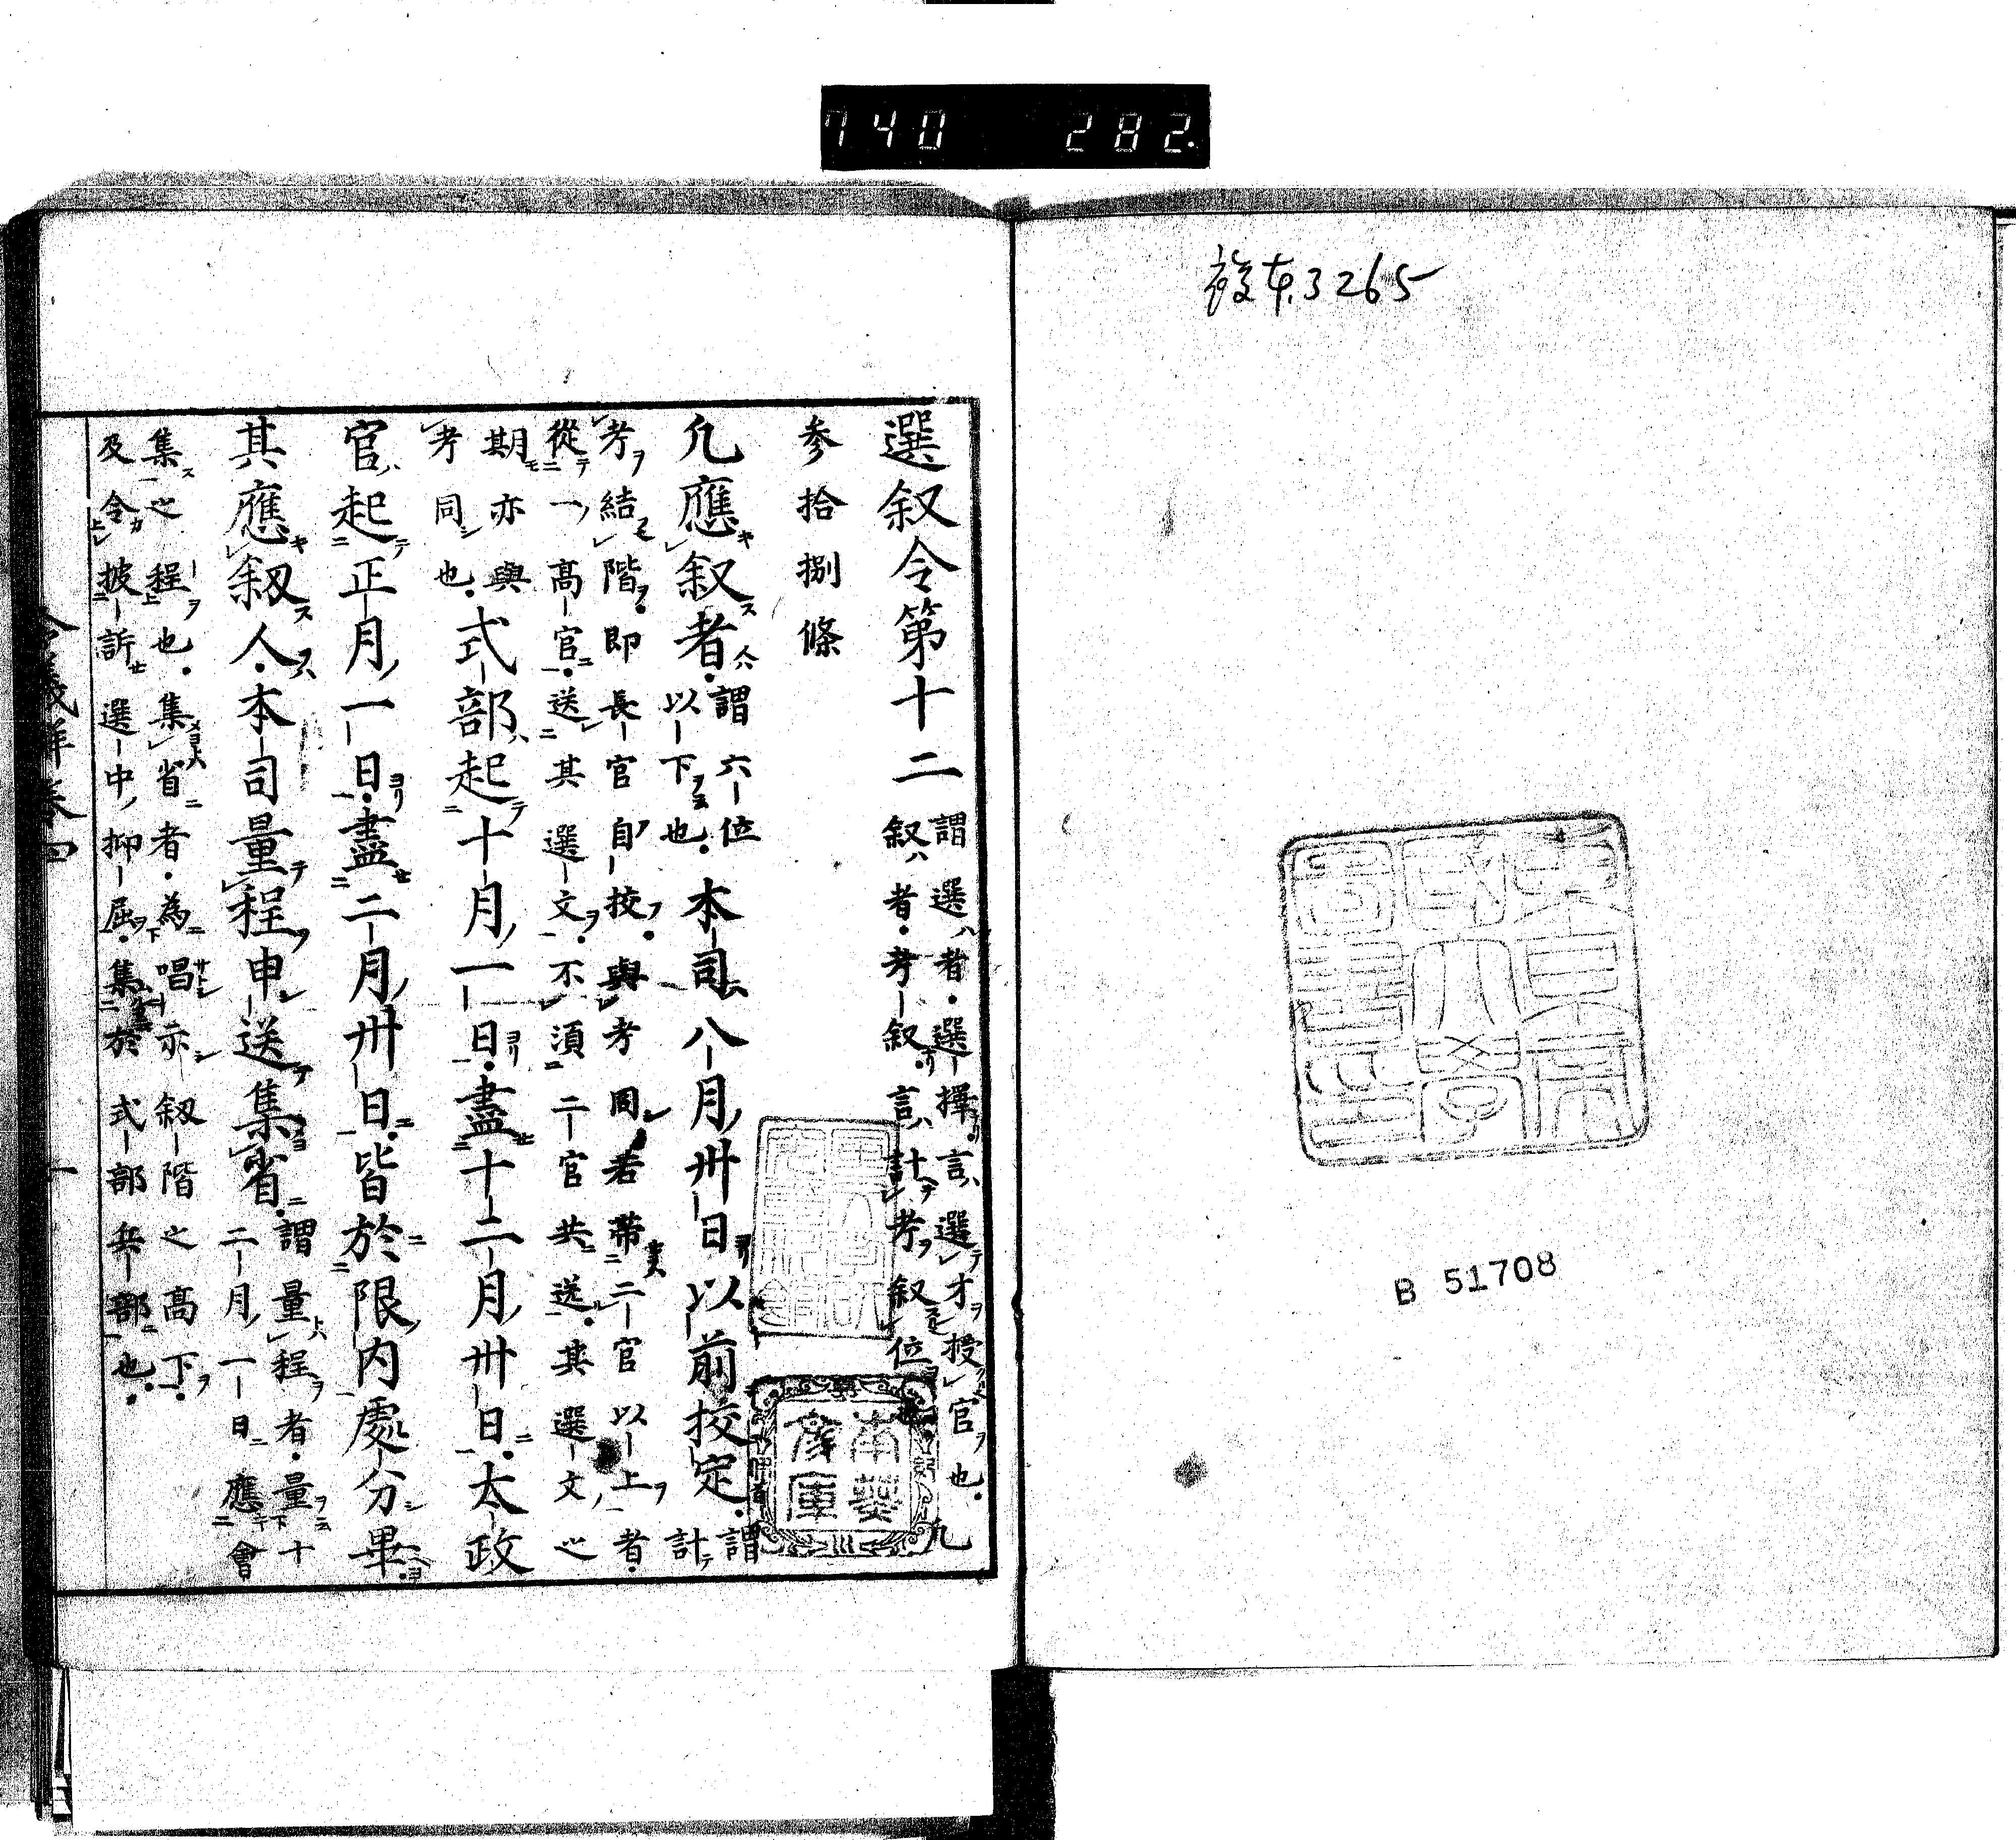 740 282.
設本.3265
東京帝國大學圖書印
B 51708
選叙令第十二 謂選者。選擇。言選才授官也。凡
叙者。考叙。言計考叙位也。
參拾捌條
凢應叙者。謂六位以下也。本司八月卅日以前挍定。謂計
考結階。即長官自挍。與考同。若帶二官以上者。
從一高官。送其選文。不須二官共送。其選文之
期亦與考同也。式部起十月一日。盡十二月卅日。太政
官起正月一日。盡二月卅日。皆於限內處分畢。
其應叙人。本司量程申送集省。謂量程者。量十二月一日應會
集之程也。集省者。為唱示叙階之高下。
及令披訴選中抑屈。集於式部兵部也。
令義解卷四 一
南葵文庫